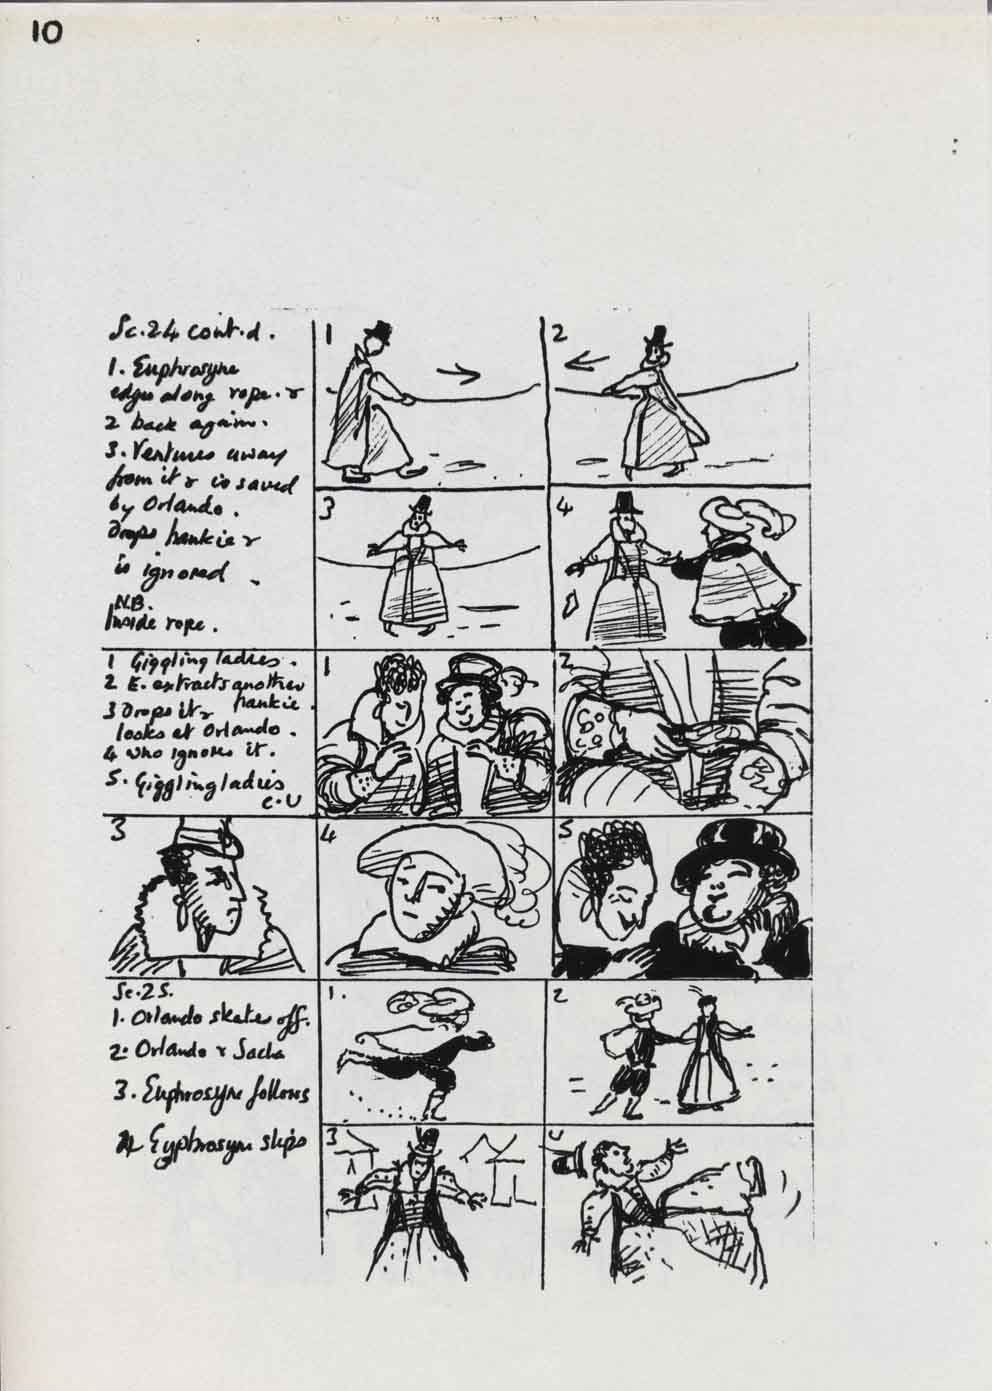 10
Sc.24 cont.d.
1. Euphrosyne
edges along rope. &
2 back again.
3. Ventures away
from it & is saved
by Orlando.
Drops hankie &
is ignored.
N.B.
Inside rope.
1
2
3
4
1 Giggling ladies.
2 E. extracts another
hankie.
3 Drops it &
looks at Orlando.
4 who ignores it.
5. Giggling ladies
C.U
1
2
3
4
5
Sc.25.
1. Orlando skates off.
2. Orlando & Sacha
3. Euphrosyne follows
4 Euphrosyne slips
1.
2
3
4